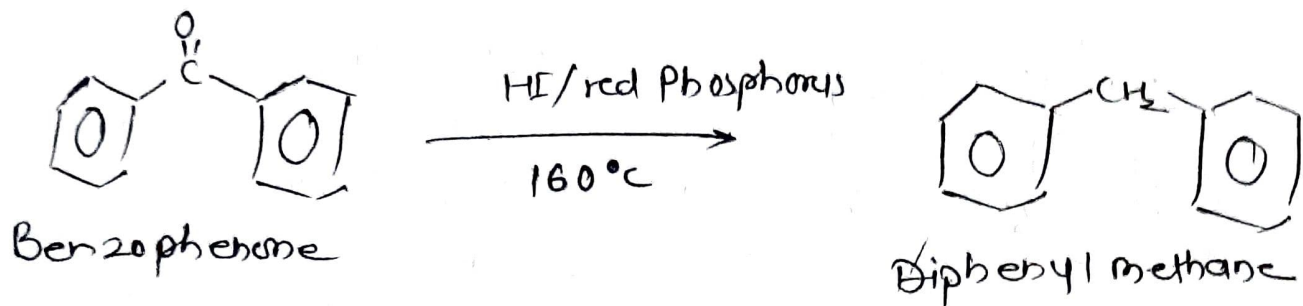 O
C
HI/red Phosphorus
160°C
CH2
Benzophenone
Diphenyl methane